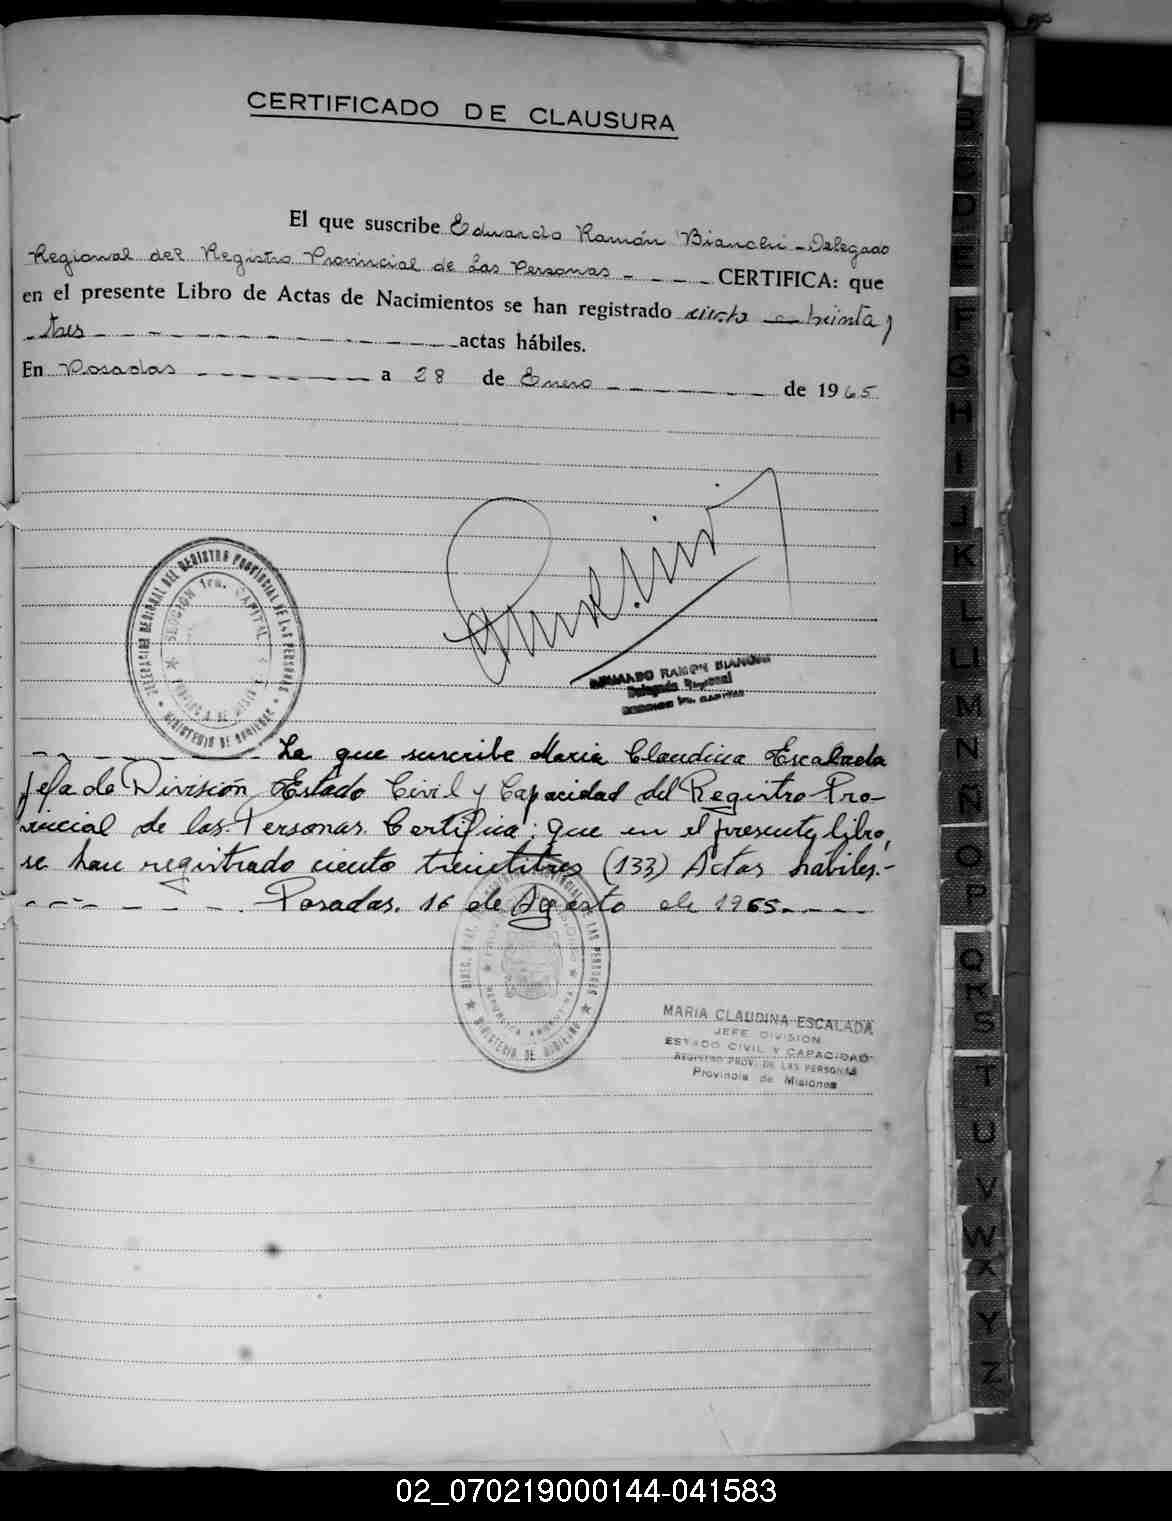 CERTIFICADO DE CLAUSURA
El que suscribe Eduardo Ramón Bianchi - Delegado
Regional del Registro Provincial de las Personas - - - - CERTIFICA: que
en el presente Libro de Actas de Nacimientos se han registrado ciento treinta y
tres actas hábiles.
En Posadas a 28 de Enero de 1965
DELEGACION REGIONAL DEL REGISTRO PROVINCIAL DE LAS PERSONAS
SECCION 1ra. CAPITAL
MINISTERIO DE GOBIERNO
EDUARDO RAMON BIANCHI
Delegado Regional
SECCION 1ra. CAPITAL
La que suscribe Maria Claudina Escalada
Jefa de División Estado Civil y Capacidad del Registro Pro-
vincial de las Personas. Certifica: Que en el presente libro,
se han registrado ciento treintitres (133) Actas habiles.-
Posadas, 16 de Agosto de 1965
DE LAS PERSONAS
REPUBLICA ARGENTINA
MINISTERIO DE GOBIERNO
MARIA CLAUDINA ESCALADA
JEFE DIVISION
ESTADO CIVIL Y CAPACIDAD
REGISTRO PROV. DE LAS PERSONAS
Provincia de Misiones
B
C
D
E
F
G
H
I
J
K
L
LL
M
N
Ñ
O
P
Q
R
S
T
U
V
W
X
Y
Z
02_070219000144-041583